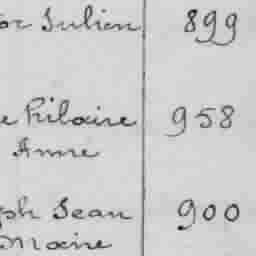 or Julien 899
e hilaire 958
Anne
ph Jean 900
Marie